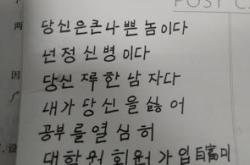 POST C
당신은큰나쁜놈이다
넌정신병이다
당신 한남자다
내가당신을싫어
공부를열심히
대학원회원가입